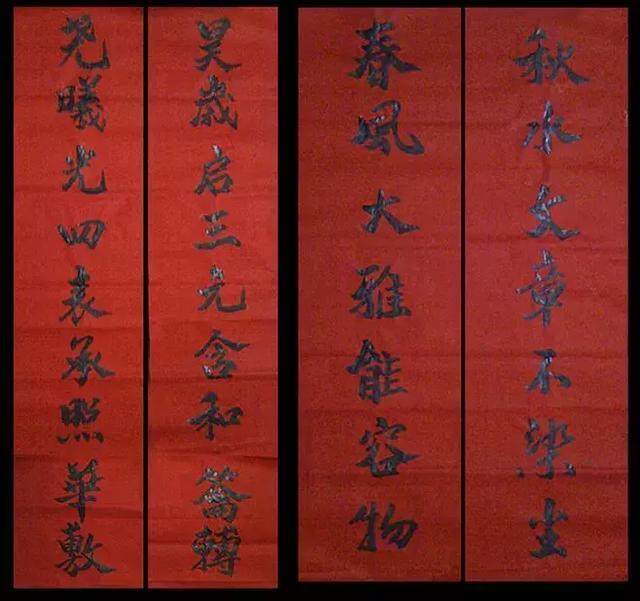 昊歲启三元含和籥轉
尧曦光四表承照華敷
春風大雅能容物
秋水文章不染尘